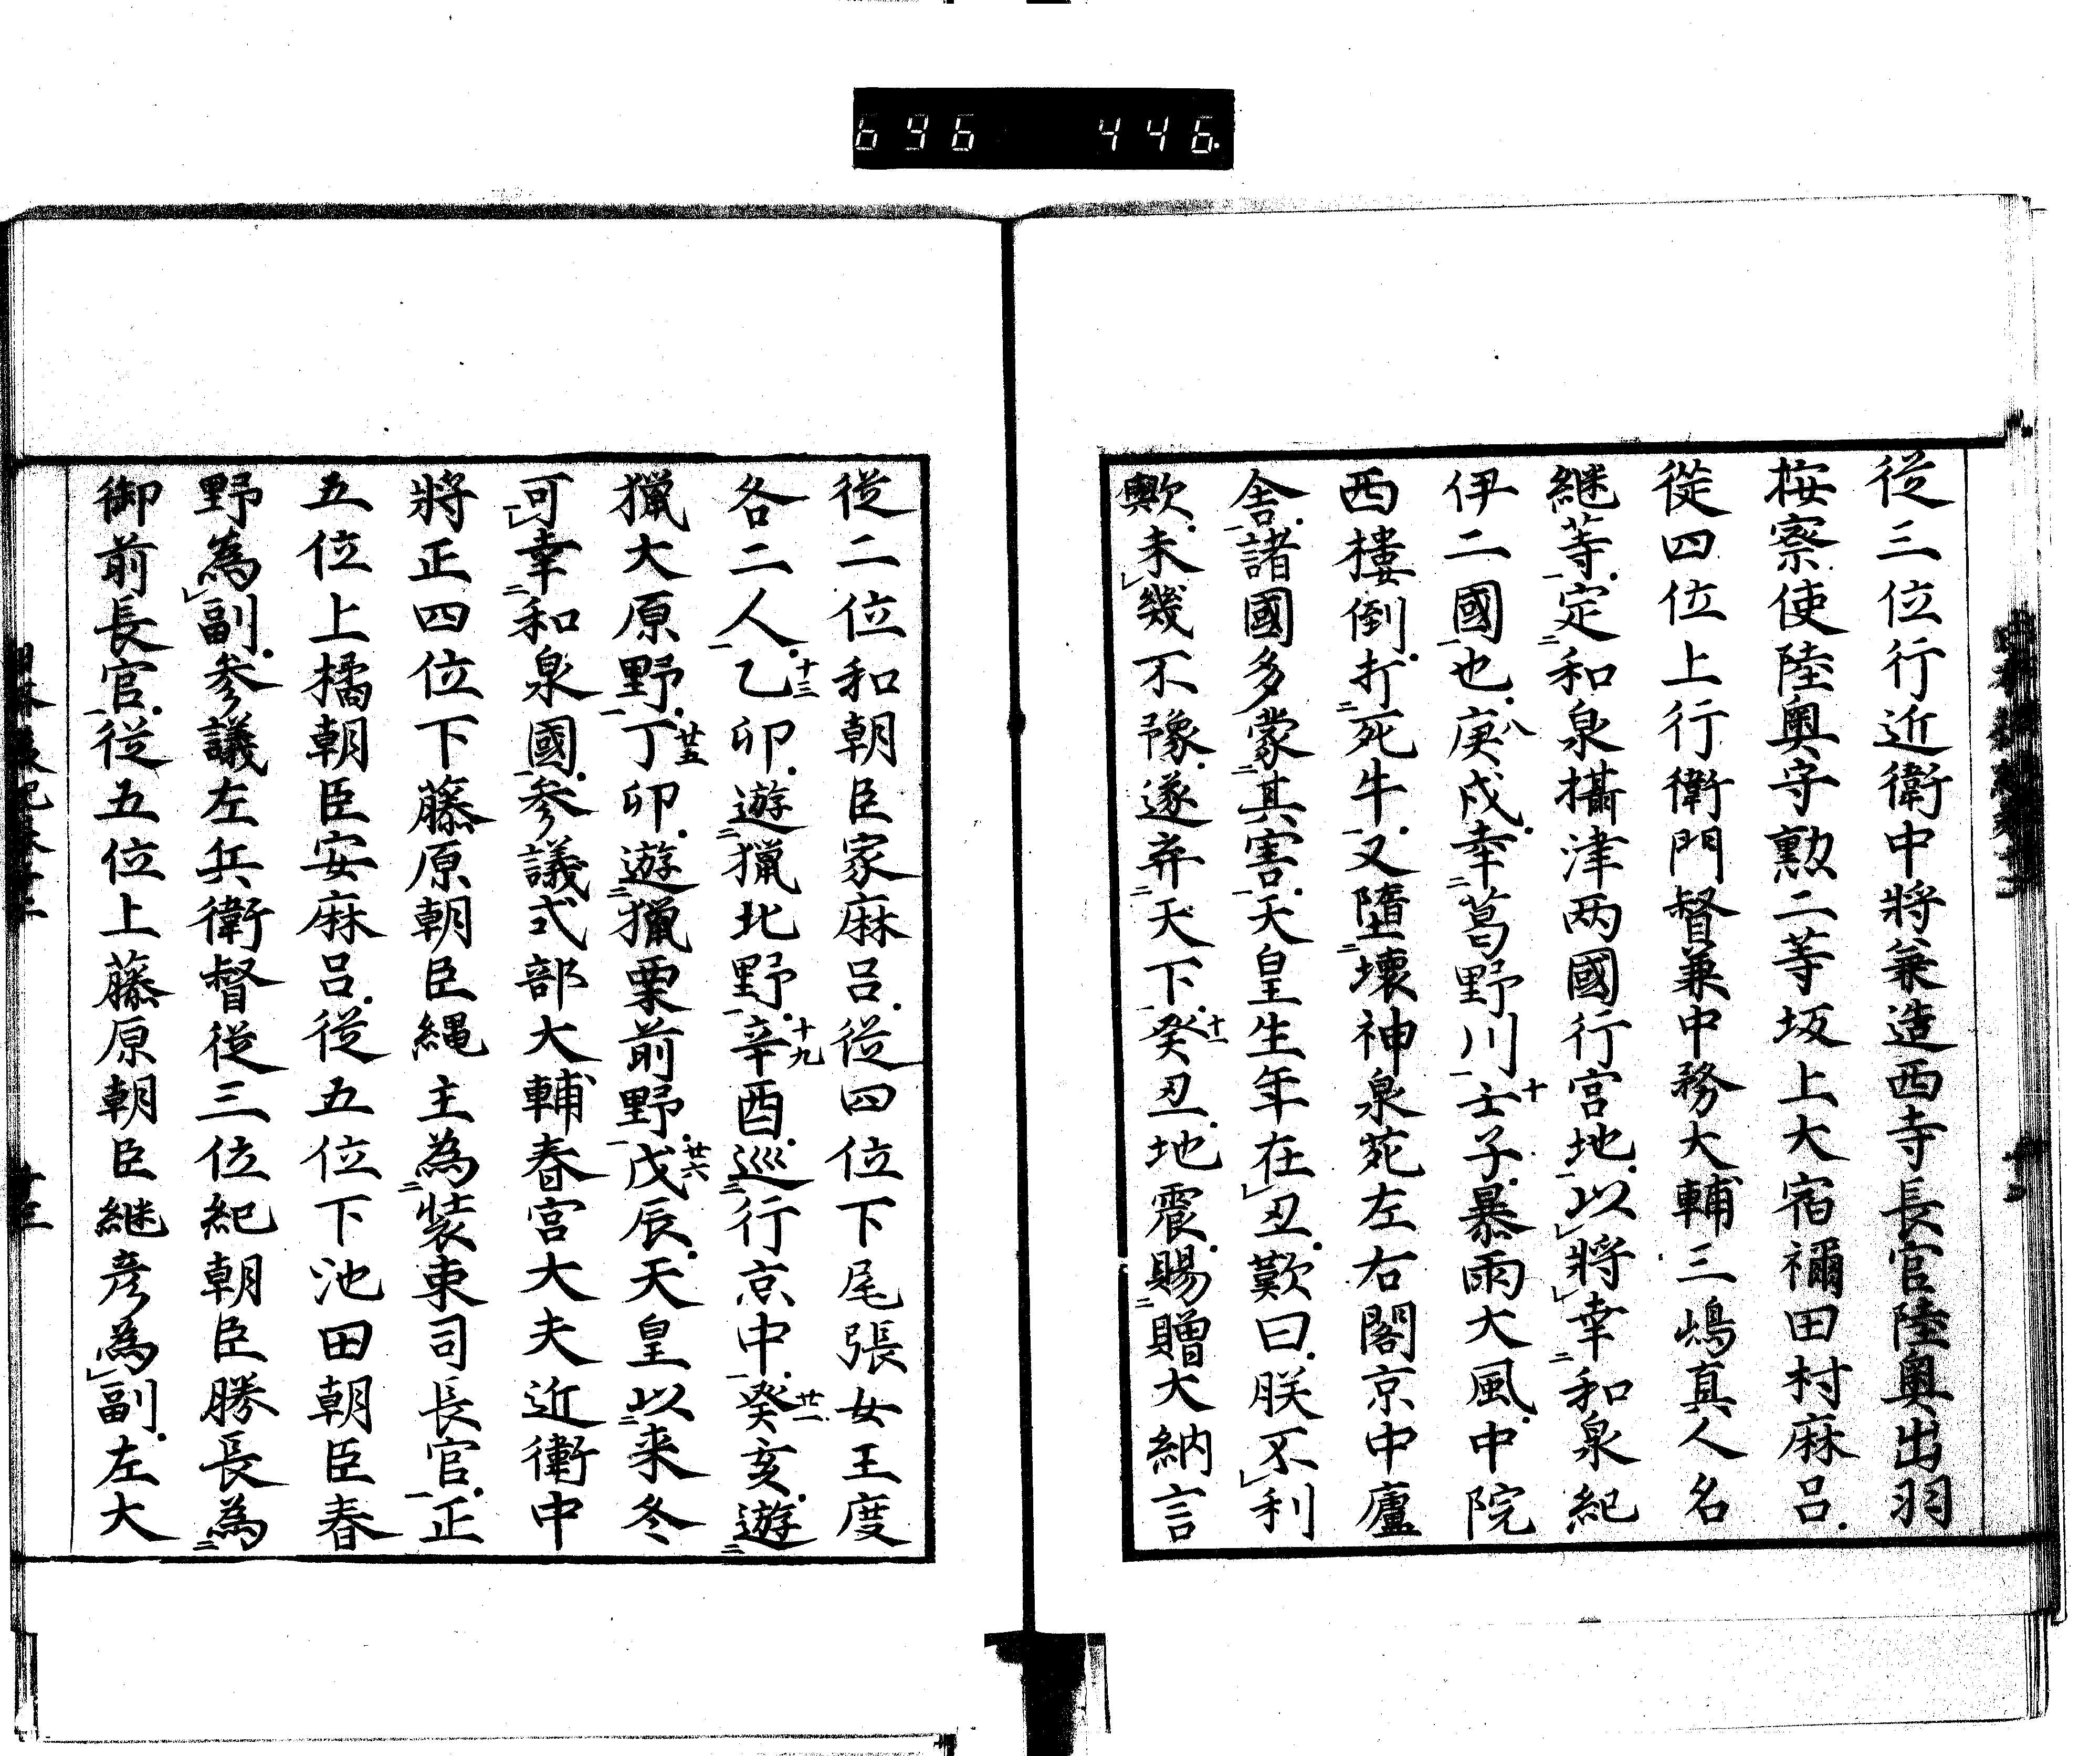 696 446.
従三位行近衛中將兼造西寺長官陸奧出羽
按察使陸奧守勲二等坂上大宿禰田村麻呂
從四位上行衛門督兼中務大輔三嶋真人名
継等定和泉攝津两國行宮地以將幸和泉紀
伊二國也庚戌幸葛野川壬子暴雨大風中院
西樓倒打死牛又墮壞神泉苑左右閣京中廬
舎諸國多蒙其害天皇生年在丑歎曰朕不利
歟未幾不豫遂弃天下癸丑地震賜贈大納言
従二位和朝臣家麻呂從四位下尾張女王度
各二人乙卯遊獵北野辛酉巡行京中癸亥遊
獵大原野丁卯遊獵栗前野戊辰天皇以来冬
可幸和泉國参議式部大輔春宮大夫近衛中
將正四位下藤原朝臣縄主為装束司長官正
五位上橘朝臣安麻呂從五位下池田朝臣春
野為副参議左兵衛督従三位紀朝臣勝長為
御前長官従五位上藤原朝臣継彦為副左大